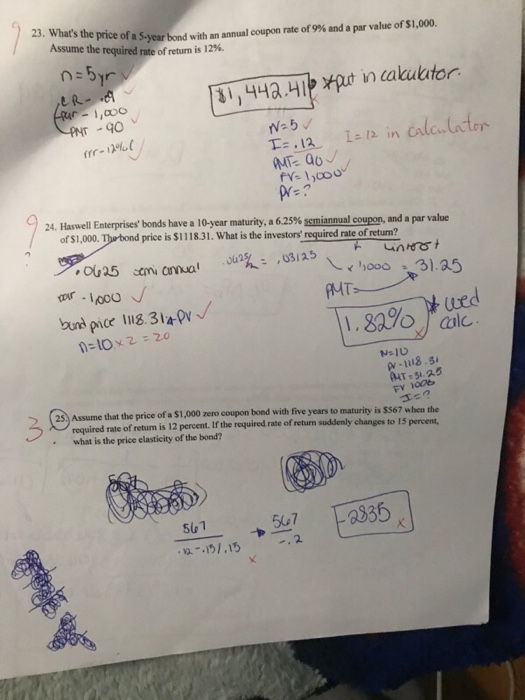 9
23. What's the price of a 5-year bond with an annual coupon rate of 9% and a par value of $1,000.
Assume the required rate of return is 12%.
n=5yr ✓
CR - .09
Par - 1,000
PMT - 90
rrr - 12%
$1,442.41 *put in calculator.
N=5 ✓
I=.12
I=12 in calculator
PMT=90 ✓
FV=1,000 ✓
PV=?
9
24. Haswell Enterprises' bonds have a 10-year maturity, a 6.25% semiannual coupon, and a par value
of $1,000. The bond price is $1118.31. What is the investors' required rate of return?
?
.0625 semi annual
.0625/2 = .03125
x 1,000 = 31.25
par - 1,000 ✓
PMT
bond price 1118.31 PV ✓
n=10 x2 = 20
1.82% x
* used calc.
N=10
PV-1118.31
PMT=31.25
FV 1000
I=?
3
25. Assume that the price of a $1,000 zero coupon bond with five years to maturity is $567 when the
required rate of return is 12 percent. If the required rate of return suddenly changes to 15 percent,
what is the price elasticity of the bond?
567
.12-.15/.15
→ 567
-.2
x
-2835 x